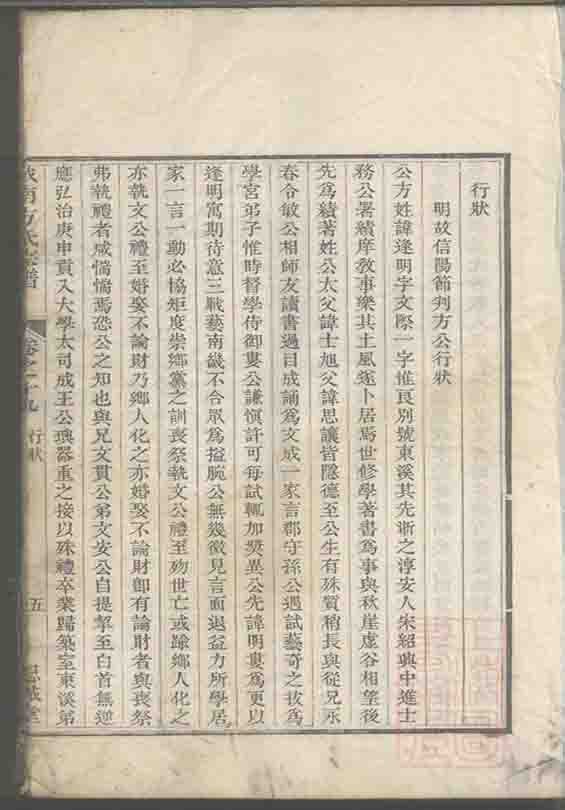 行狀
明故信陽節判方公行狀
公方姓諱逢明字文際一字惟良別號東溪其先浙之淳安人宋紹興中進士
務公署績庠教事樂其土風遂卜居焉世修學著書為事與秋崖虛谷相望後
先為績著姓公太父諱士旭父諱思讓皆隱德至公生有殊質稍長與從兄永
春令敏公相師友讀書過目成誦為文成一家言郡守孫公遇試藝奇之拔為
學宮弟子惟時督學侍御婁公謙慎許可每試輒加獎異公先諱明婁為更以
逢明寓期待意三戰藝南畿不合眾為搤腕公無幾微見言面退益力所學居
家一言一動必協矩度崇鄉黨之訓喪祭執文公禮至歿世亡或踰鄉人化之
亦執文公禮至婚娶不論財乃鄉人化之亦婚娶不論財卽有論財者與喪祭
弗執禮者咸惴惴焉恐公之知也與兄文貫公弟文安公自提挈至白首無逆
應弘治庚申貢入大學太司成王公瓊器重之接以殊禮卒業歸築室東溪弟
城南方氏宗譜
卷之十九
行狀
五
思誠堂